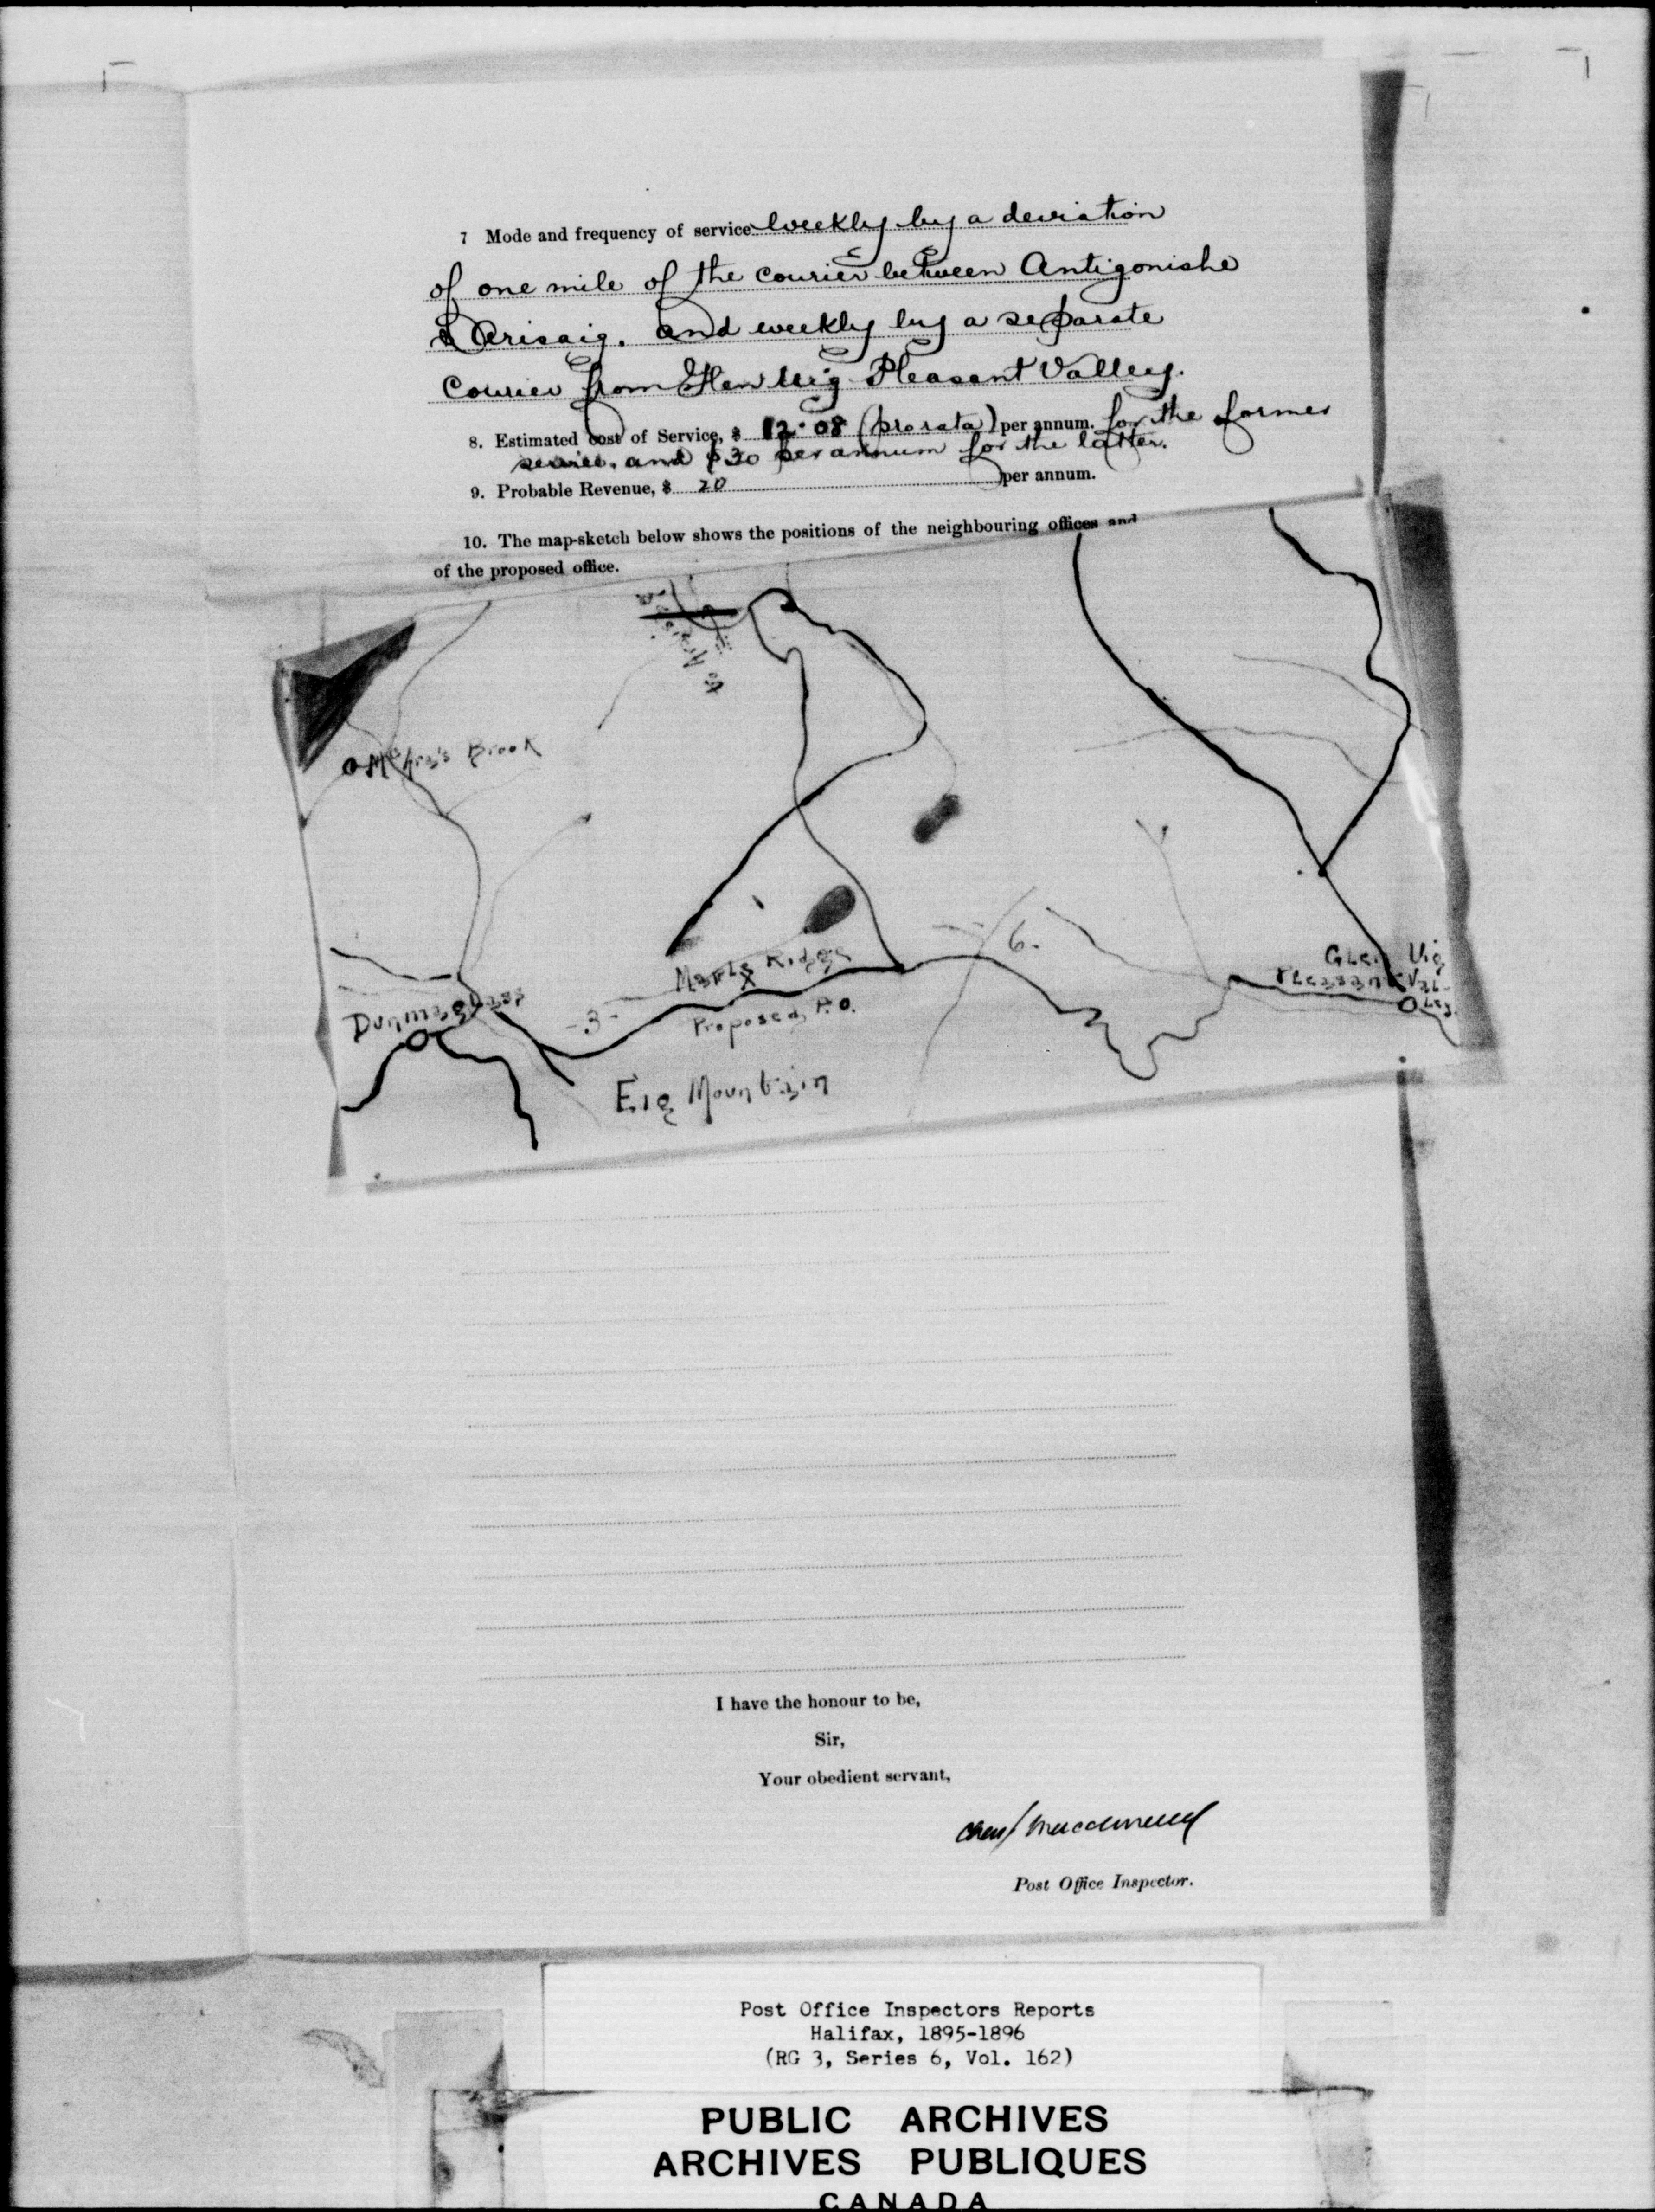 7 Mode and frequency of service weekly by a deviation
of one mile of the courier between Antigonishe
& Arisaig. and weekly by a separate
courier from Glen Uig Pleasant Valley.
8. Estimated cost of Service, $ 12.08 (pro rata) per annum. for the former
service, and $30 per annum for the latter.
9. Probable Revenue, $ 20 per annum.
10. The map-sketch below shows the positions of the neighbouring offices and
of the proposed office.
McAra's Brook
6.
Maple Ridge
X
Glen Uig
Pleasant Val-
ley.
Dunmaglass
-3-
Proposed P.O.
Eig Mountain
I have the honour to be,
Sir,
Your obedient servant,
Post Office Inspector.
Post Office Inspectors Reports
Halifax, 1895-1896
(RG 3, Series 6, Vol. 162)
PUBLIC ARCHIVES
ARCHIVES PUBLIQUES
CANADA